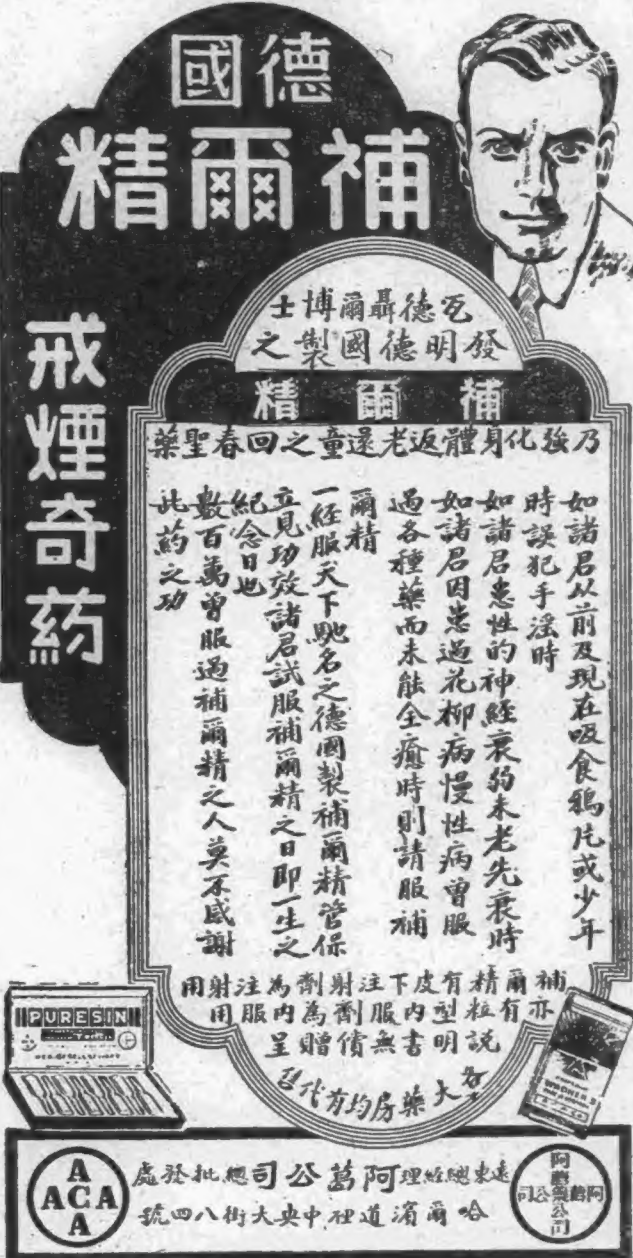 德國
補爾精
戒煙奇葯
瓦德聶爾博士
發明德國製之
補爾精
乃強化身體返老還童之回春聖藥
如諸君从前及現在吸食鴉片或少年
時誤犯手淫時
如諸君患性的神經衰弱未老先衰時
如諸君因患過花柳病慢性病曾服
過各種藥而未能全癒時則請服補
爾精
一經服天下馳名之德國製補爾精管保
立見功效諸君試服補爾精之日即一生之
紀念日也
數百萬曾服過補爾精之人莫不感謝
此葯之功
補爾精有皮下注射劑為注射用
亦有粒型內服劑為內服用
說明書無債贈呈
各大藥房均有代售
PURESIN
WAGNER'S
遠東總經理阿葛公司總批發處
哈爾濱道裡中央大街八四號
A
ACA
A
公司